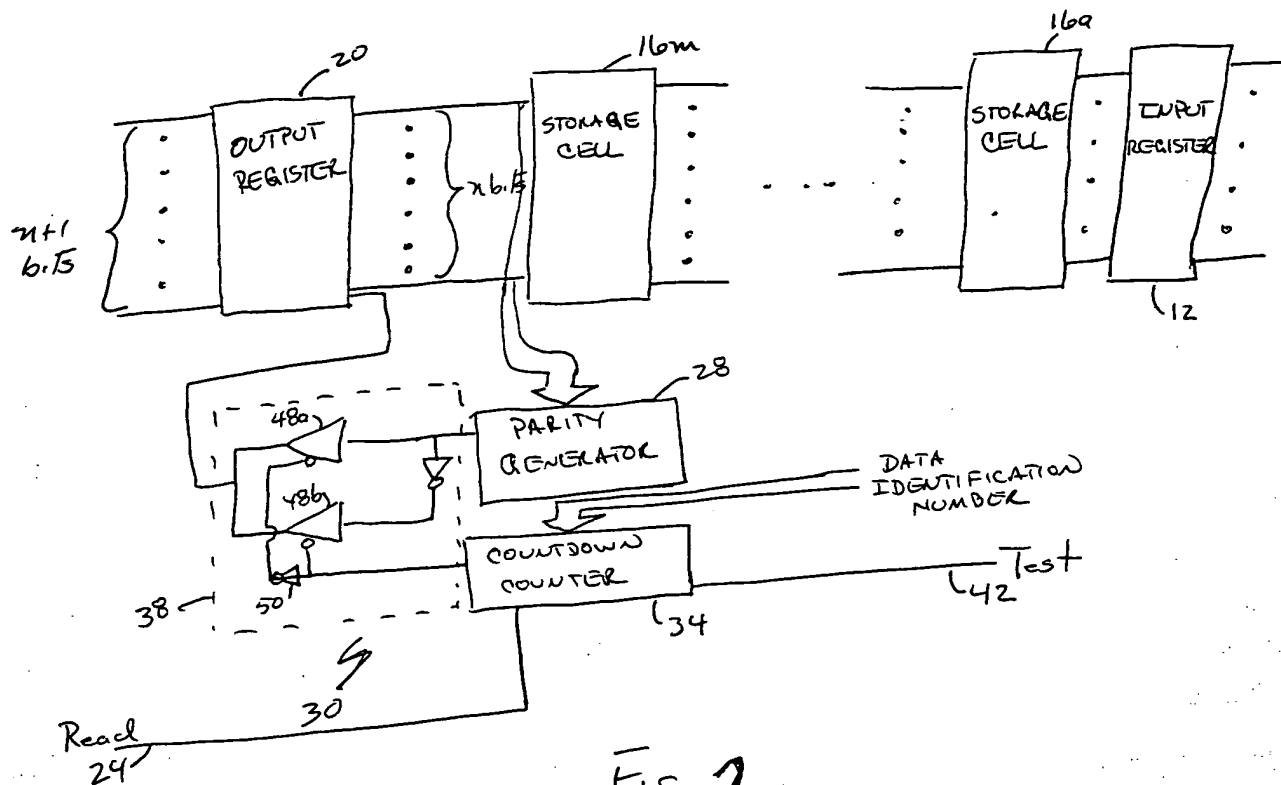 20
16m
16a
OUTPUT
REGISTER
STORAGE
CELL
STORAGE
CELL
INPUT
REGISTER
n+1
bits
n bits
12
28
48a
PARITY
GENERATOR
48b
DATA
IDENTIFICATION
NUMBER
COUNTDOWN
COUNTER
Test
50
38
42
34
30
Read
24
Fig. 2